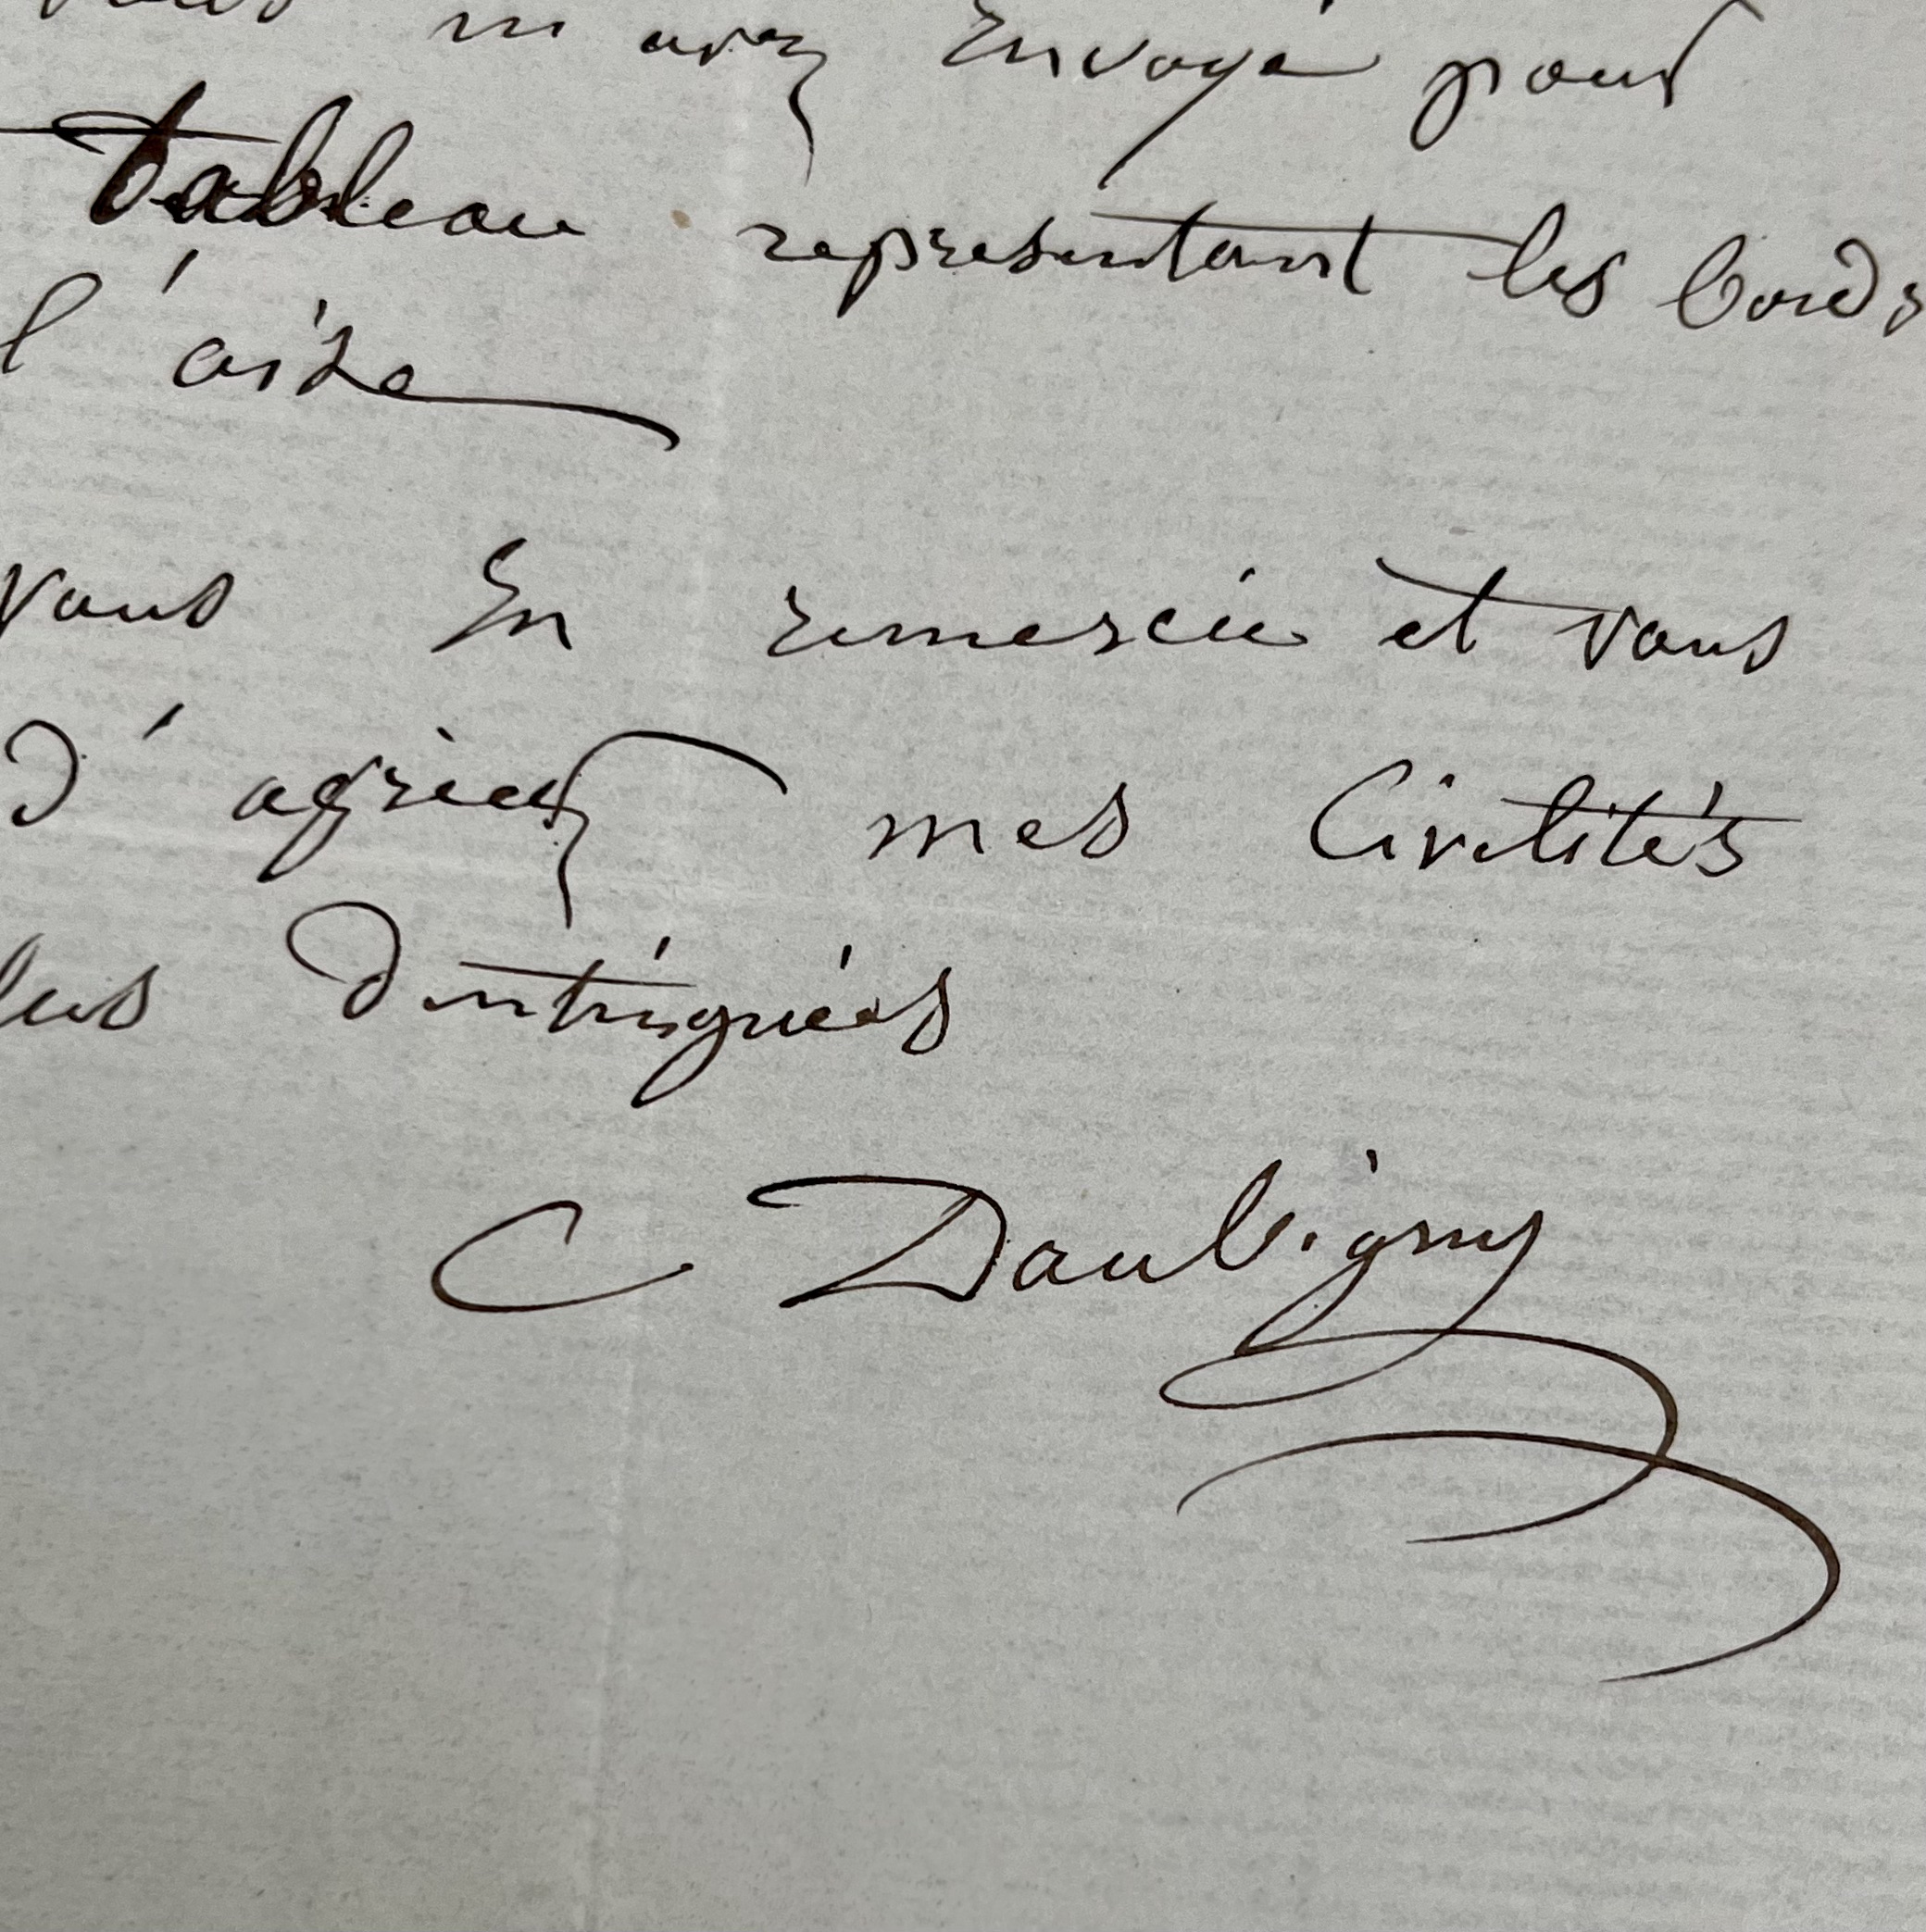 vous m'avez Envoyé pour
tableau representant les bords
l'oise
vous En remercie et vous
d'agréez mes Civilités
lus distinguées
C Daubigny